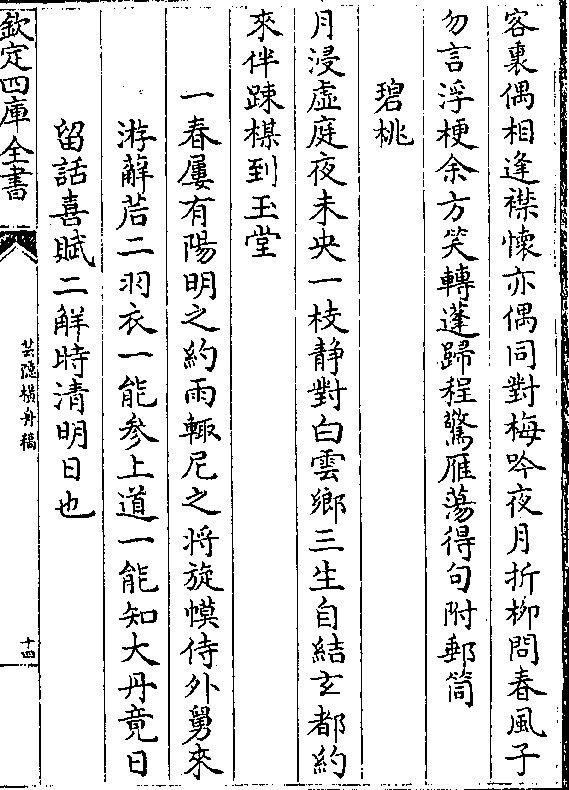 客裏偶相逢襟懷亦偶同對梅吟夜月折柳問春風子
勿言浮梗余方笑轉蓬歸程驚雁蕩得句附郵筒
碧桃
月浸虛庭夜未央一枝静對白雲鄉三生自結玄都約
來伴踈棋到玉堂
一春屢有陽明之約雨輙尼之将旋幞侍外舅來
游蘚㟃二羽衣一能參上道一能知大丹竟日
留話喜賦二解時清明日也
欽定四庫全書
芸隱橫舟稿
十四